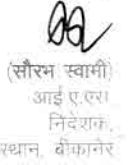 (सौरभ स्वामी)
आई.ए.एस.
निदेशक,
स्थान, बीकानेर